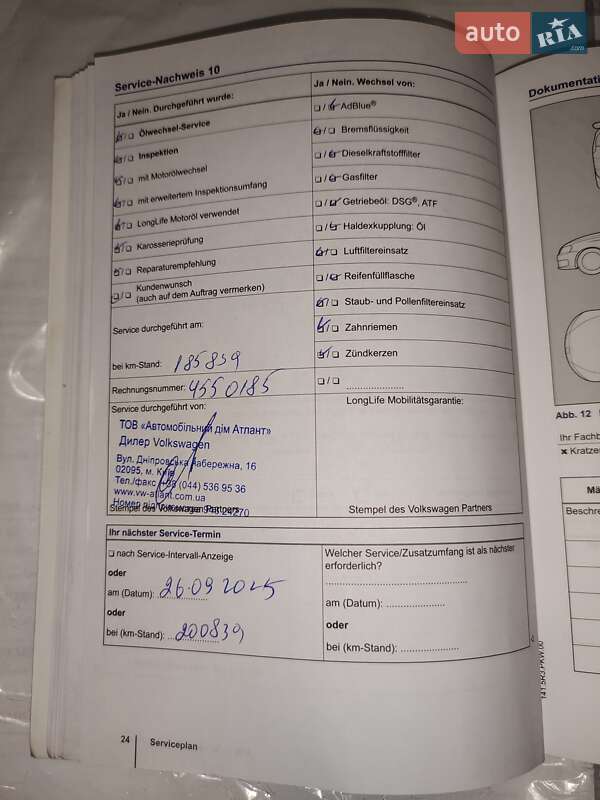 auto RIA.com
Service-Nachweis 10
Ja / Nein. Durchgeführt wurde:
☑/☐ Ölwechsel-Service
☑/☐ Inspektion
☑/☐ mit Motorölwechsel
☑/☐ mit erweitertem Inspektionsumfang
☑/☐ LongLife Motoröl verwendet
☑/☐ Karosserieprüfung
☑/☐ Reparaturempfehlung
☐/☐ Kundenwunsch
(auch auf dem Auftrag vermerken)
Service durchgeführt am:
bei km-Stand: 185839
Rechnungsnummer: 4550185
Service durchgeführt von:
ТОВ «Автомобільний дім Атлант»
Дилер Volkswagen
Вул. Дніпровська набережна, 16
02095, м. Київ
Тел./факс +38 (044) 536 95 36
www.vw-atlant.com.ua
Stempel des Volkswagen Partners
Ja / Nein. Wechsel von:
☐/☑ AdBlue®
☑/☐ Bremsflüssigkeit
☐/☑ Dieselkraftstofffilter
☐/☑ Gasfilter
☐/☑ Getriebeöl: DSG®, ATF
☐/☑ Haldexkupplung: Öl
☑/☐ Luftfiltereinsatz
☐/☑ Reifenfüllflasche
☑/☐ Staub- und Pollenfiltereinsatz
☑/☐ Zahnriemen
☑/☐ Zündkerzen
☐/☐ ......................
LongLife Mobilitätsgarantie:
Stempel des Volkswagen Partners
Ihr nächster Service-Termin
☐ nach Service-Intervall-Anzeige
oder
am (Datum): 26.09 2025
oder
bei (km-Stand): 200839
Welcher Service/Zusatzumfang ist als nächster
erforderlich?
am (Datum): ......................
oder
bei (km-Stand): ......................
24 Serviceplan
141.5R3.PKW.00
Dokumentati
Abb. 12
Ihr Fachb
✖ Kratze
Mä
Beschre